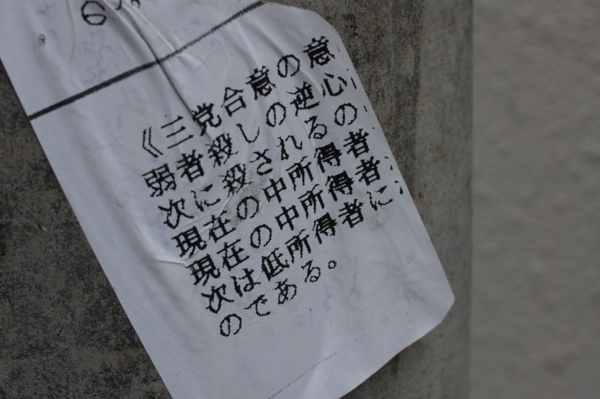 《三党合意の意
弱者殺しの逆心
次に殺されるの
現在の中所得者
現在の中所得者
次は低所得者に
のである。